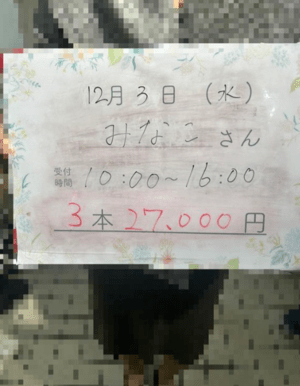 12月3日（水）
みなこさん
受付時間 10:00~16:00
3本 27.000円